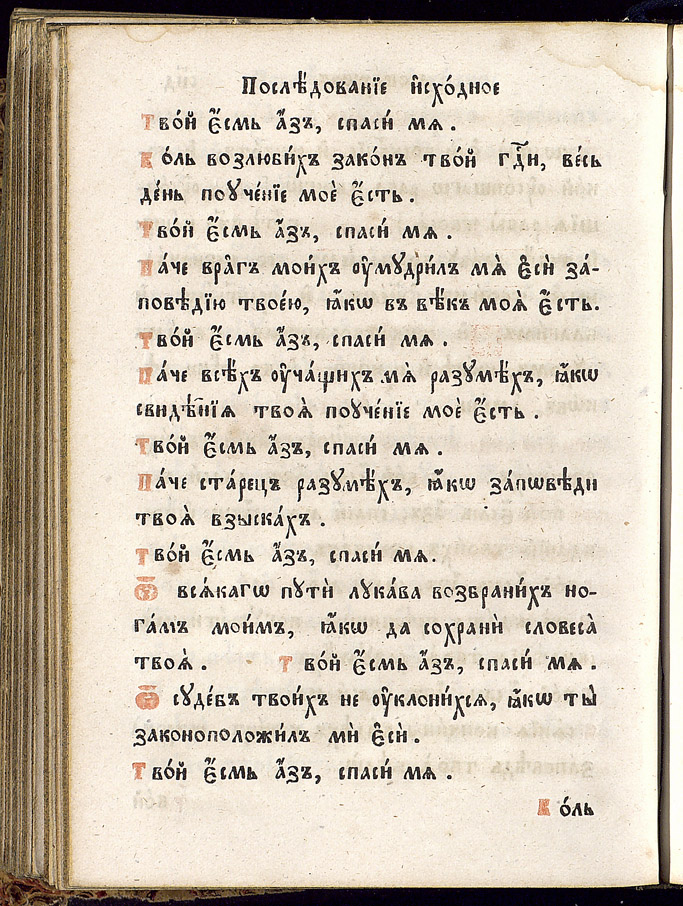 Послѣ́дованїе и҆схо́дное
Тво́й є҆́смь а҆́зъ, спаси́ мѧ.
Ко́ль возлюби́хъ зако́нъ тво́й гдⷭ҇и, ве́сь
де́нь поуче́нїе моѐ є҆́сть.
Тво́й є҆́смь а҆́зъ, спаси́ мѧ.
Па́че вра̑гъ мои́хъ ᲂу҆мꙋдри́лъ мѧ̀ є҆сѝ за́-
повѣдїю твое́ю, ꙗ҆́кѡ въ вѣ́къ моѧ̀ є҆́сть.
Тво́й є҆́смь а҆́зъ, спаси́ мѧ.
Па́че всѣ́хъ ᲂу҆ча́щихъ мѧ̀ разꙋмѣ́хъ, ꙗ҆́кѡ
свидѣ̑нїѧ твоѧ̀ поуче́нїе моѐ є҆́сть.
Тво́й є҆́смь а҆́зъ, спаси́ мѧ.
Па́че ста́рецъ разꙋмѣ́хъ, ꙗ҆́кѡ за́пѡвѣди
твоѧ̀ взыска́хъ.
Тво́й є҆́смь а҆́зъ, спаси́ мѧ.
Ѿ всѧ́кагѡ пꙋтѝ лꙋка́ва возбрани́хъ но-
га́мъ мои́мъ, ꙗ҆́кѡ да сохранѝ словеса̀
твоѧ̀. Тво́й є҆́смь а҆́зъ, спаси́ мѧ.
Ѿ сꙋде́бъ твои́хъ не ᲂу҆клони́хсѧ, ꙗ҆́кѡ ты̀
законоположи́лъ мѝ є҆сѝ.
Тво́й є҆́смь а҆́зъ, спаси́ мѧ.
Ко́ль